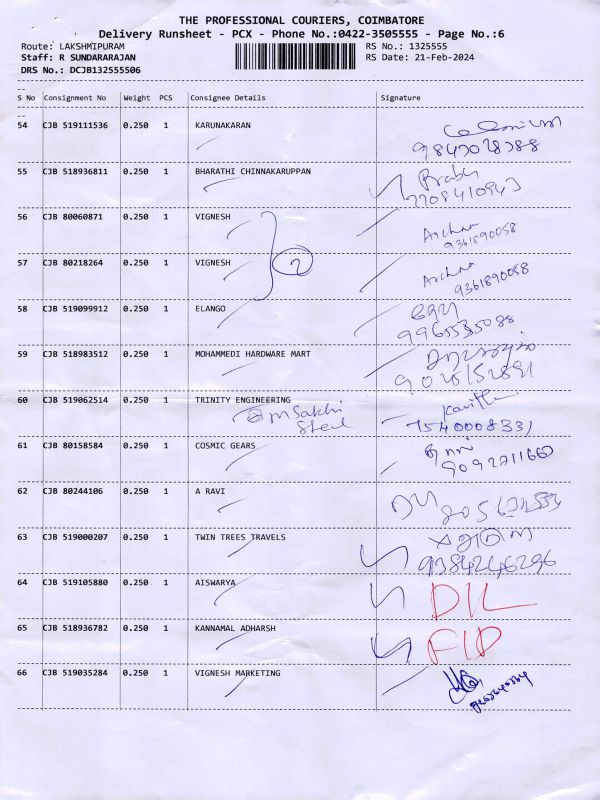 THE PROFESSIONAL COURIERS, COIMBATORE
Delivery Runsheet - PCX - Phone No.:0422-3505555 - Page No.:6
Route: LAKSHMIPURAM RS No.: 1325555
Staff: R SUNDARARAJAN RS Date: 21-Feb-2024
DRS No.: DCJB132555506
--
S No Consignment No Weight PCS Consignee Details Signature
--
54 CJB 519111536 0.250 1 KARUNAKARAN
55 CJB 518936811 0.250 1 BHARATHI CHINNAKARUPPAN
7708410943
56 CJB 80060871 0.250 1 VIGNESH
Archna
9361890058
57 CJB 80218264 0.250 1 VIGNESH
2
Archna
9361890058
58 CJB 519099912 0.250 1 ELANGO
9965535088
59 CJB 518983512 0.250 1 MOHAMMEDI HARDWARE MART
60 CJB 519062514 0.250 1 TRINITY ENGINEERING
M Sakthi
Steel
7540008331
61 CJB 80158584 0.250 1 COSMIC GEARS
62 CJB 80244106 0.250 1 A RAVI
63 CJB 519000207 0.250 1 TWIN TREES TRAVELS
9384246296
64 CJB 519105880 0.250 1 AISWARYA
DIL
65 CJB 518936782 0.250 1 KANNAMAL ADHARSH
66 CJB 519035284 0.250 1 VIGNESH MARKETING